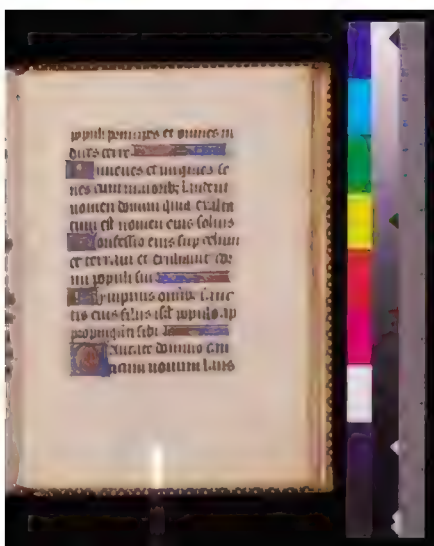 populi principes et omnes iu
dices terre
Iuvenes et virgines se
nes cum iuniorib; laudent
nomen domini quia exalta
tum est nomen eius solius
Confessio eius sup celum
et terram et exaltavit cor
nu populi sui
Hympnus omnib; sanc
tis eius filiis isrl populo ap
propinquanti sibi
Cantate domino can
ticum novum laus